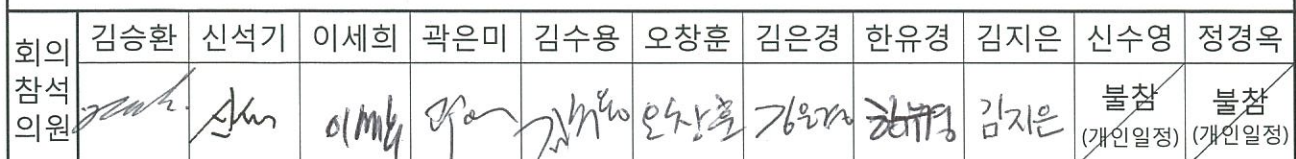 회의
참석
의원
김승환 신석기 이세희 곽은미 김수용 오창훈 김은경 한유경 김지은 신수영 정경옥
이세희 오창훈 김은경 한유경 김지은 불참 불참
(개인일정) (개인일정)